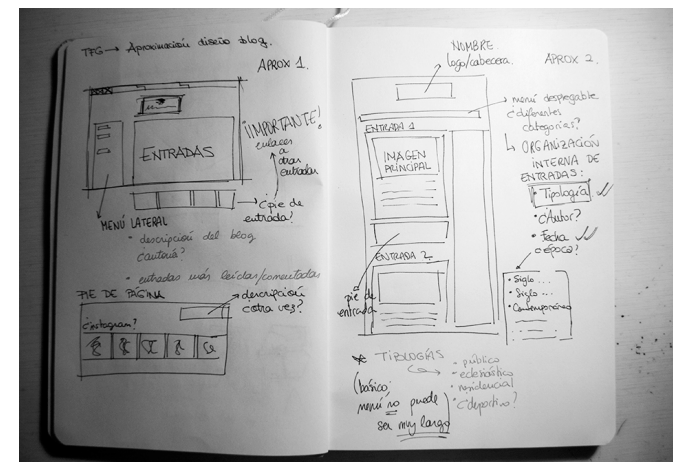 TFG → Aproximación diseño blog.
APROX 1.
ENTRADAS
¡IMPORTANTE!
enlaces
a
otras
entradas
¿pie de
entrada?
MENÚ LATERAL
• descripción del blog
¿autoría?
• entradas más leídas/comentadas
PIE DE PÁGINA
descripción
¿otra vez?
¿instagram?
NOMBRE
logo/cabecera.
APROX 2.
menú desplegable
¿diferentes
categorías?
ENTRADA 1
IMAGEN
PRINCIPAL
ORGANIZACIÓN
INTERNA DE
ENTRADAS:
• Tipología
• ¿Autor?
• Fecha
¿época?
• Siglo ...
• Siglo ...
• Contemporáneo
ENTRADA 2
pie de
entrada
* TIPOLOGÍAS
• público
• eclesiástico
• residencial
• ¿deportivo?
(básico:
menú no puede
ser muy largo)